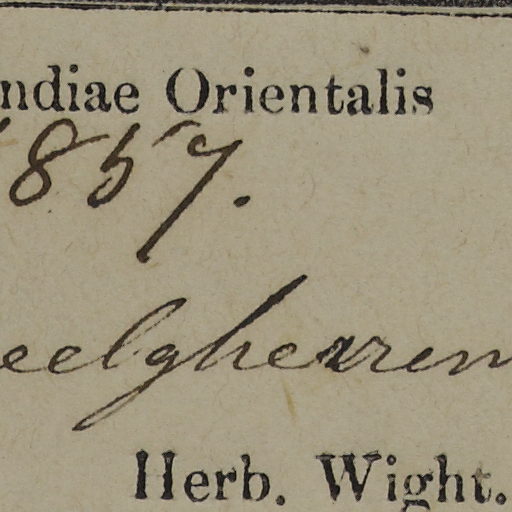 ndiae Orientalis
857.
eelgherren
Herb. Wight.